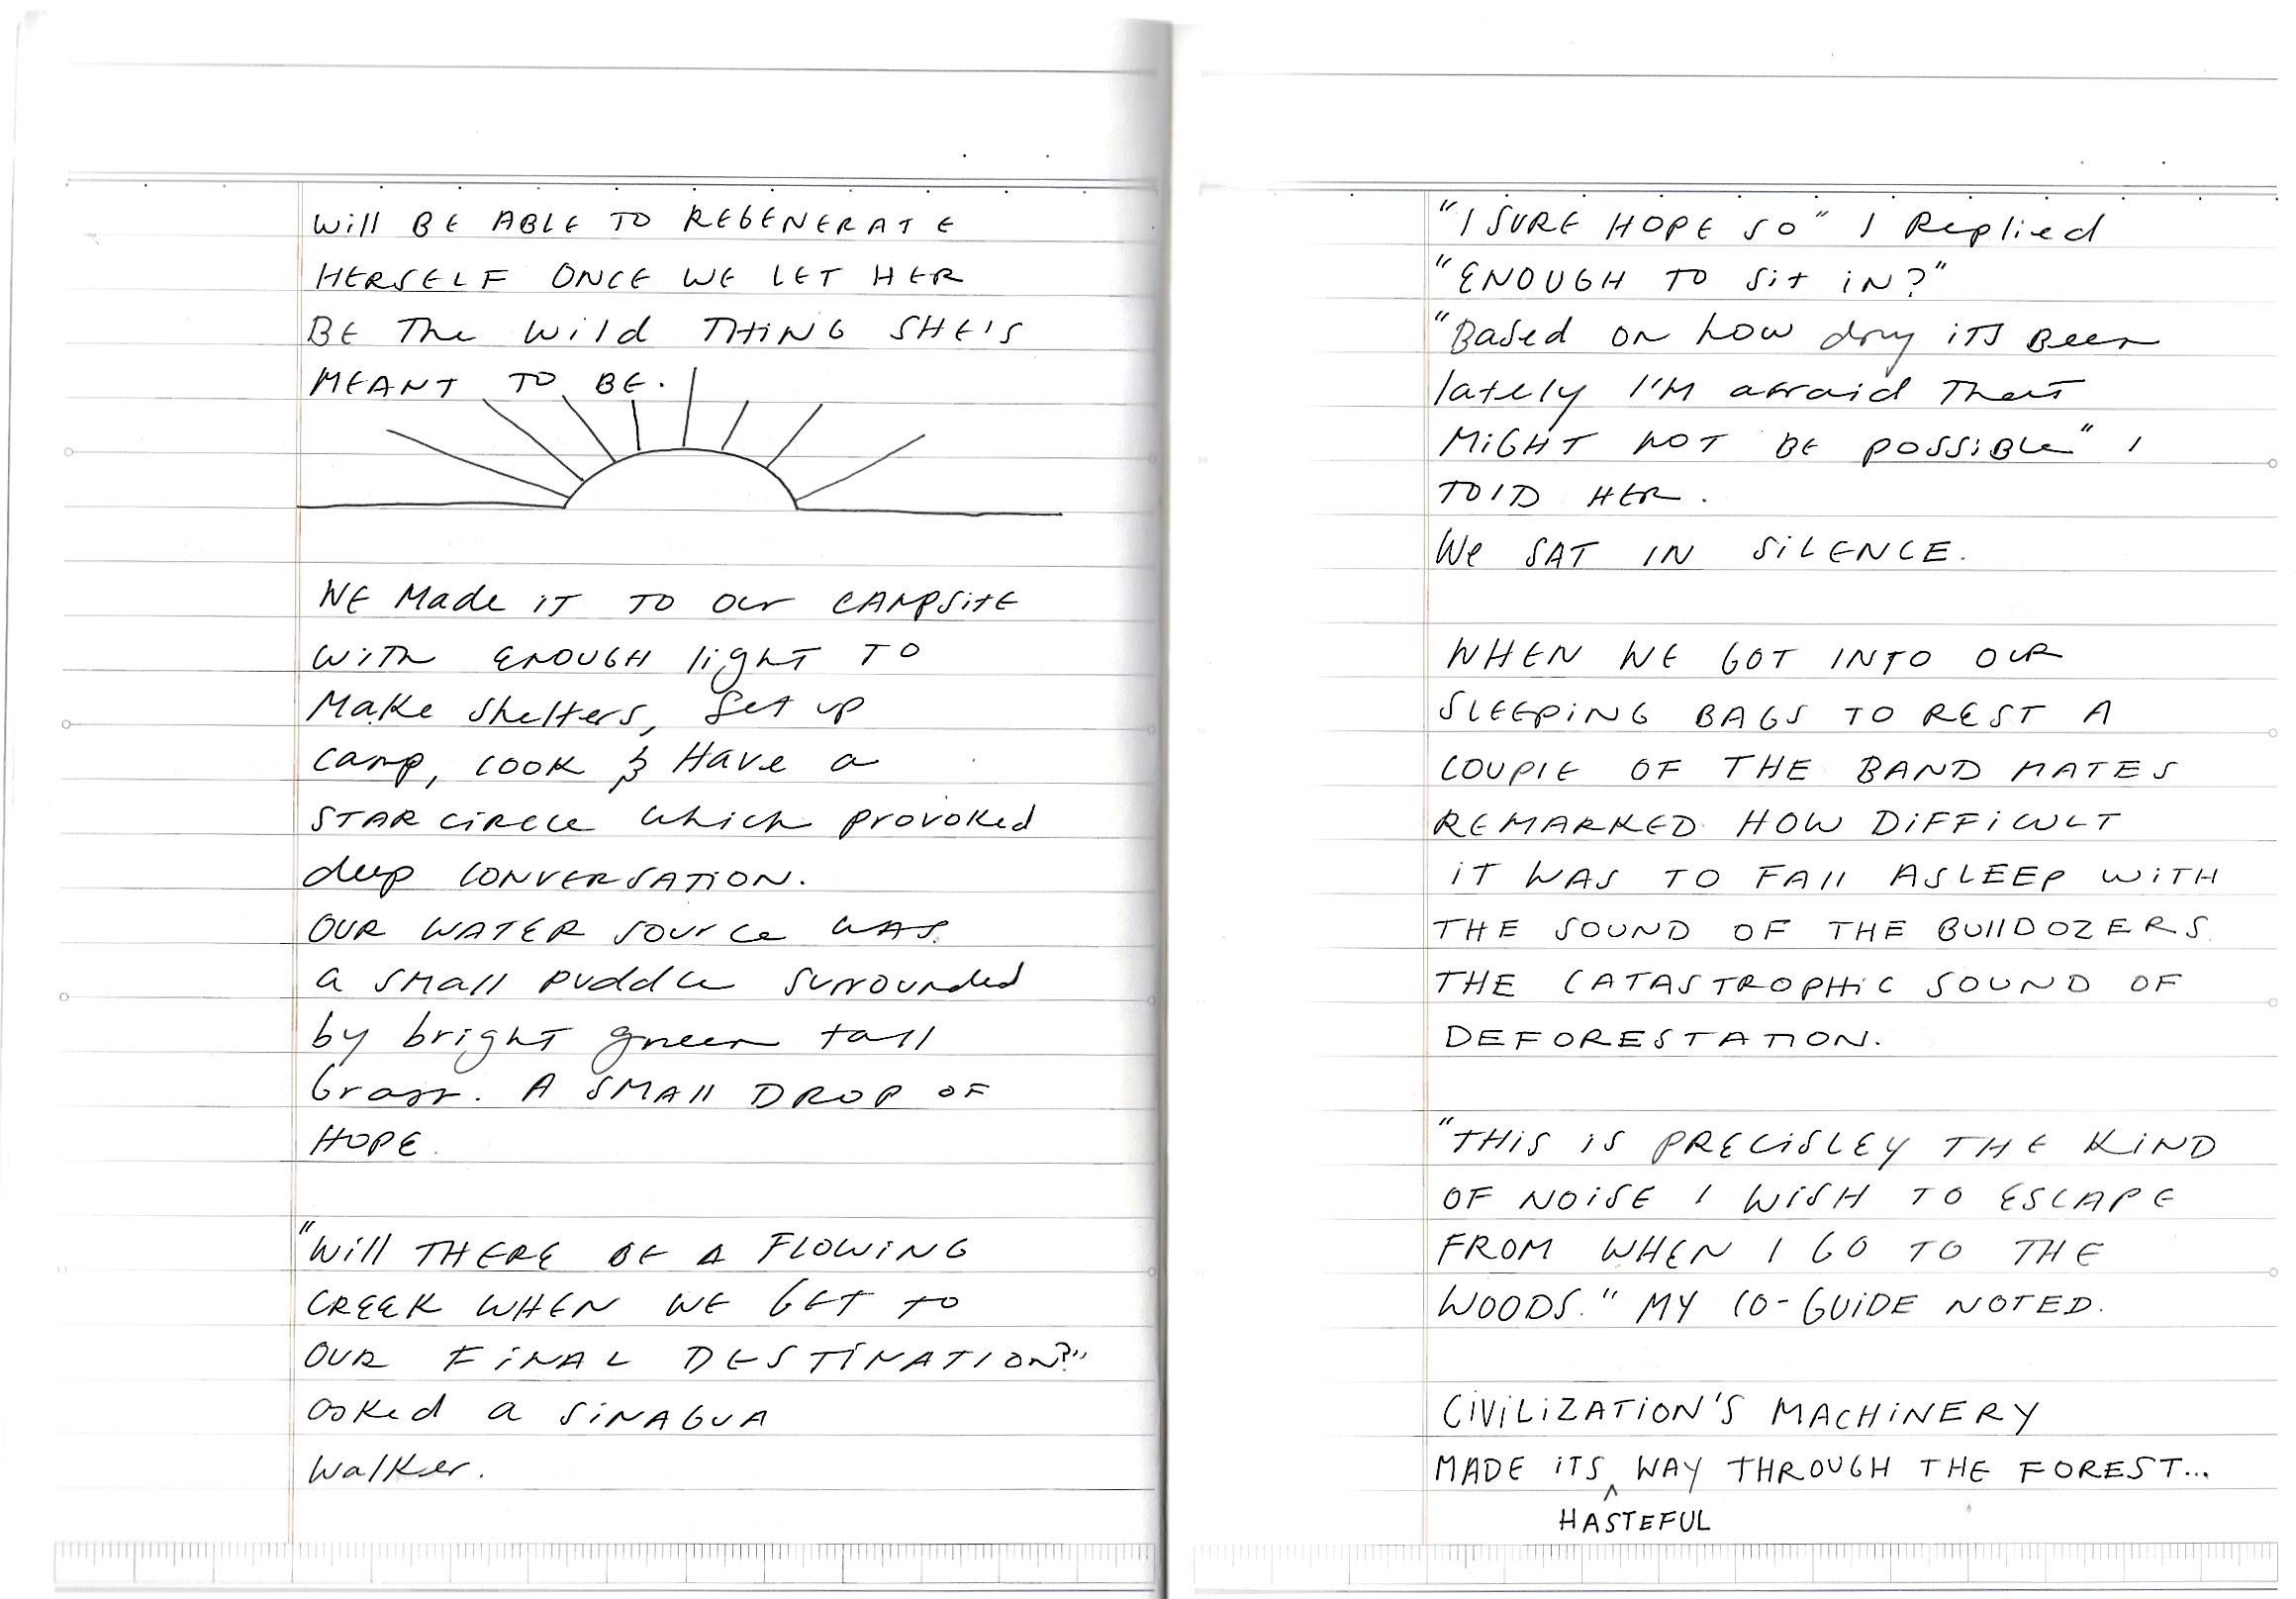 Will BE ABLE TO REGENERATE
HERSELF ONCE WE LET HER
BE The Wild THING SHE'S
MEANT TO BE.
WE Made IT TO Our CAMPSitE
WiTh ENOUGH lighT TO
Make Shelters, Set up
Camp, COOK & Have a
STAR CiRCle which provoked
deep CONVERSATION.
OUR WATER Source WAS
a SMall puddle Surrounded
by brighT green tall
Grass. A SMAll DROP OF
HOPE.
"Will THERE BE A FLOWiNG
CREEK WHEN WE GET to
OUR FiNAL DESTiNATION?"
asked a SiNAGUA
Walker.
"I SURE HOPE SO" I Replied
"ENOUGH TO Sit iN?"
"Based on how dry iTS Been
lately I'M afraid ThaT
MiGHT NOT BE possiBle" I
TOlD HER.
We SAT IN SiLENCE.
WHEN WE GOT INTO OUR
SLEEPiNG BAGS TO REST A
COUPlE OF THE BAND MATES
REMARKED HOW DiFFiCULT
iT WAS TO FAll ASLEEP WiTH
THE SOUND OF THE BUllDOZERS.
THE CATASTROPHiC SOUND OF
DEFORESTATION.
"THiS iS PRECiSLEY THE KiND
OF NOiSE I WiSH TO ESCAPE
FROM WHEN I GO TO THE
WOODS." MY CO-GUiDE NOTED.
CiViLiZATiON'S MACHiNERY
MADE iTS ^ WAY THROUGH THE FOREST...
HASTEFUL